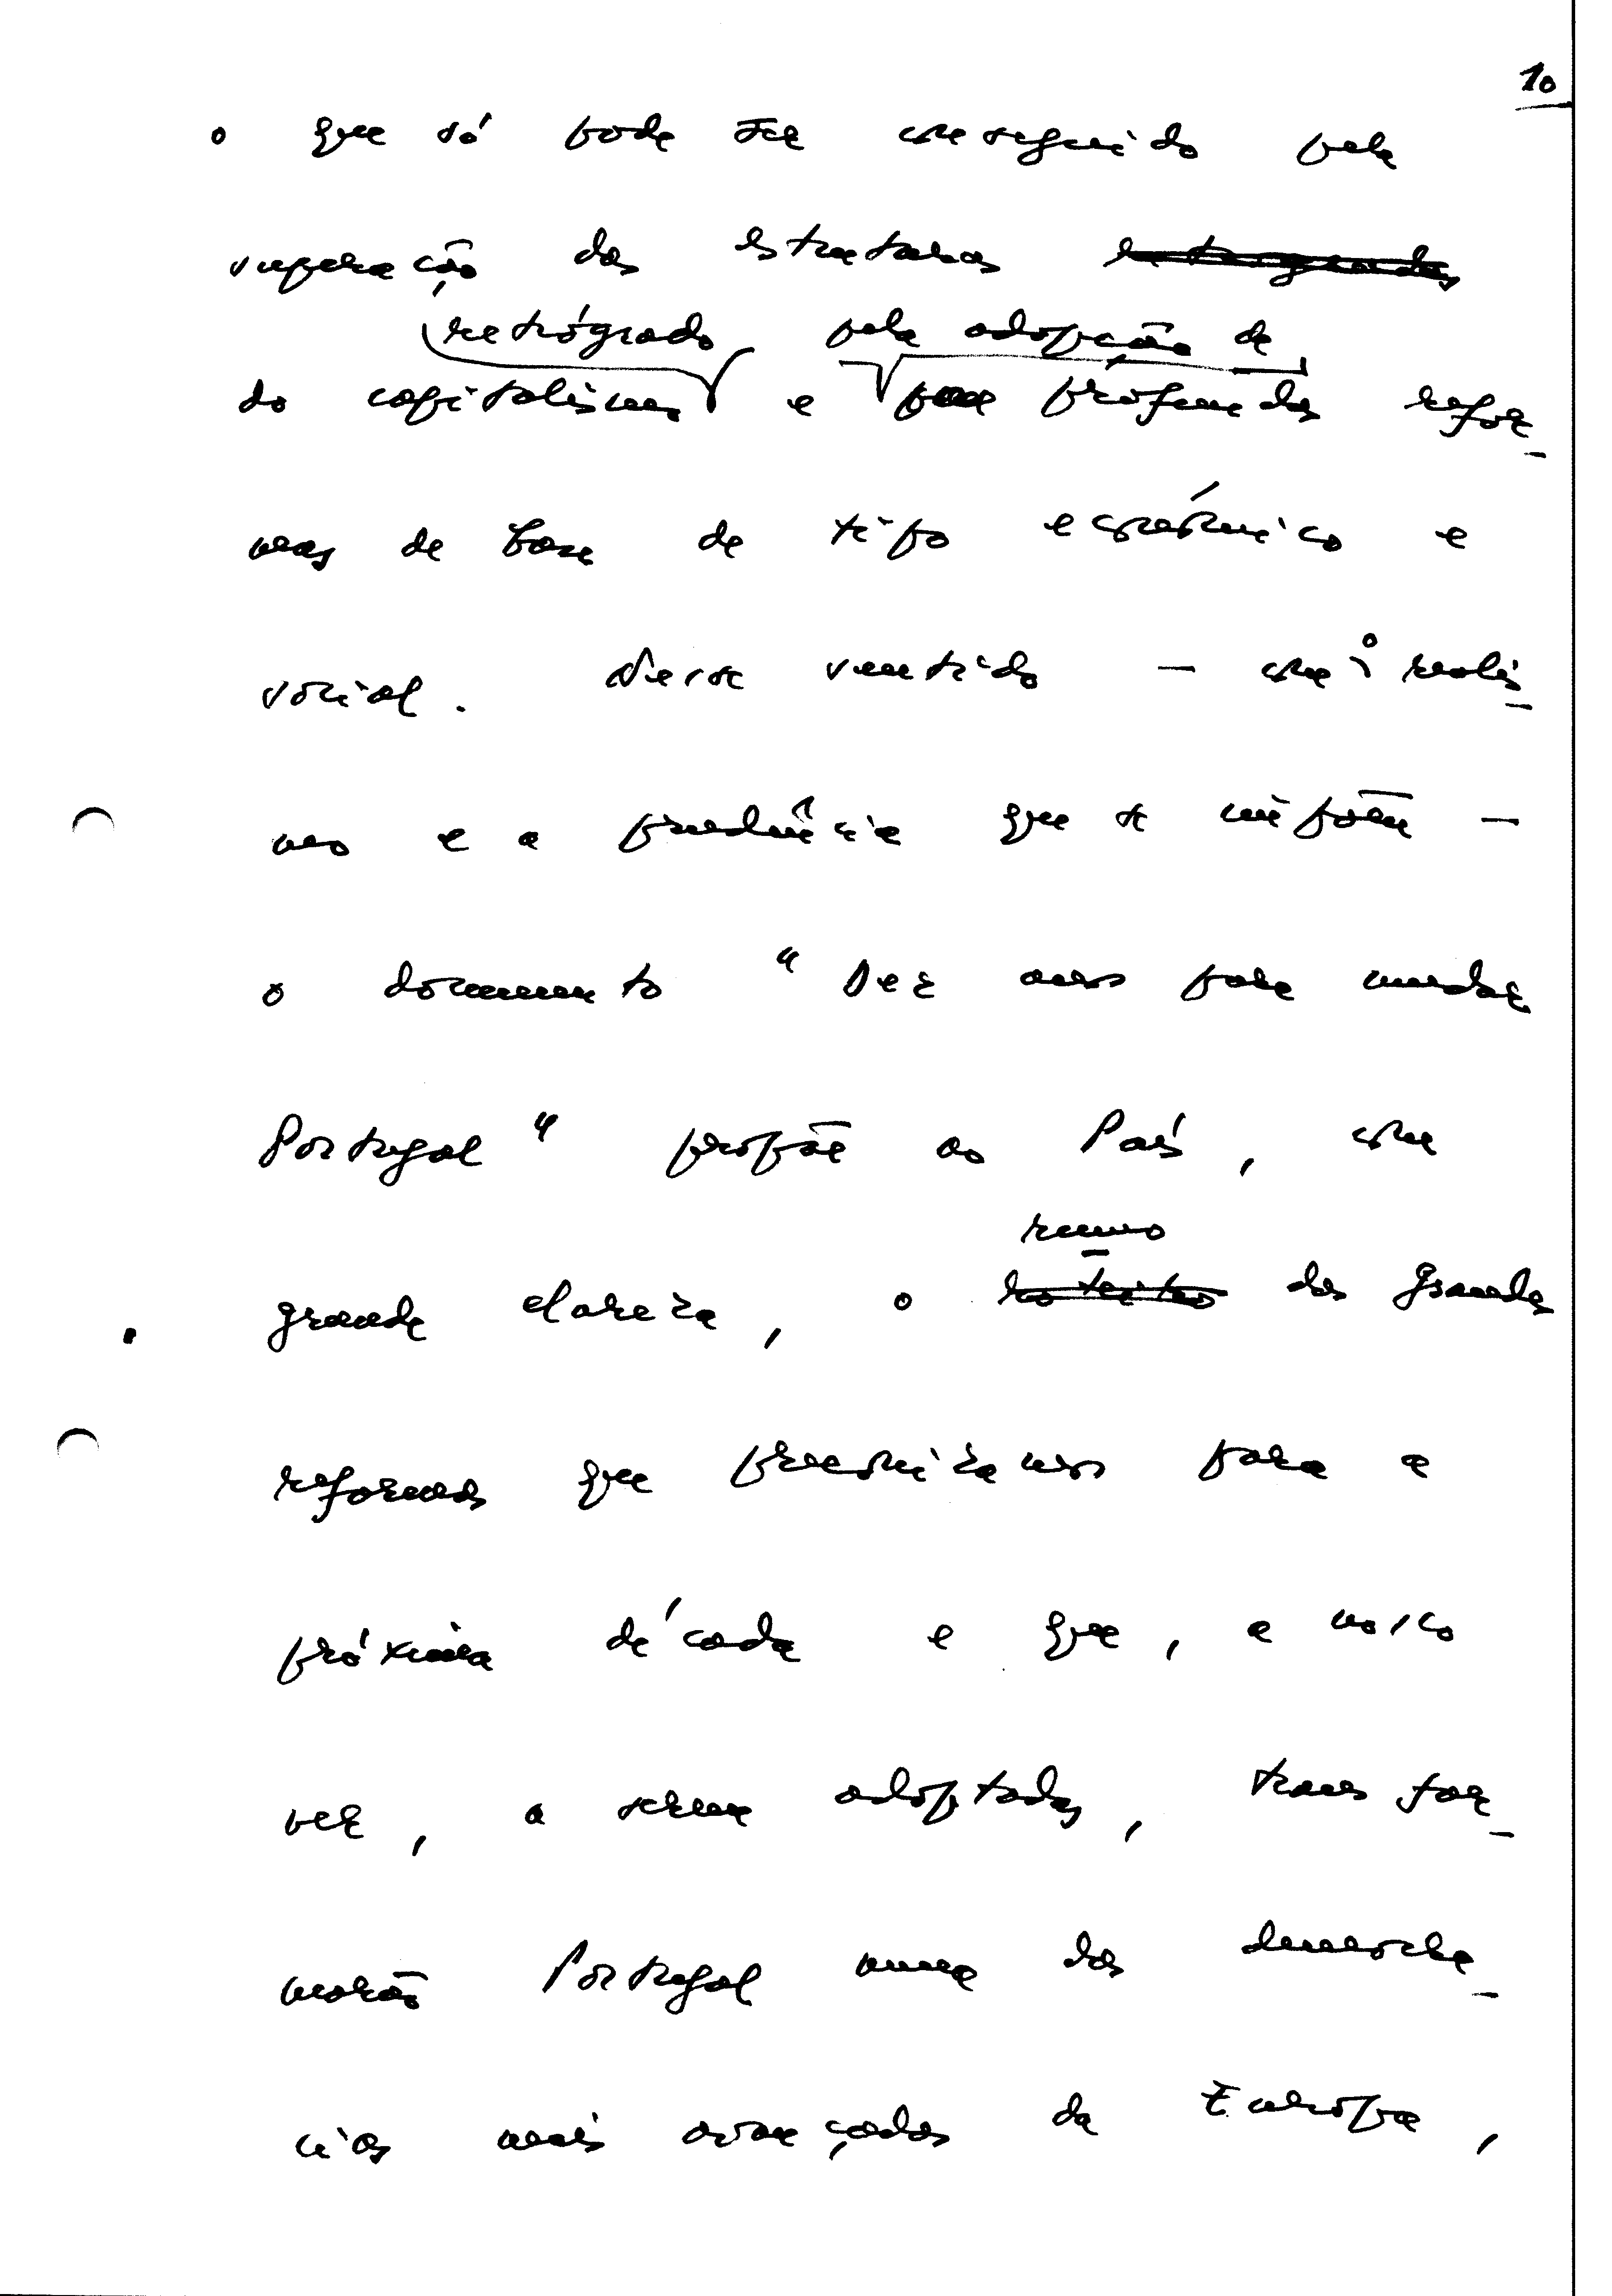 10
o que só pode ser conseguido pela
superação das estruturas retrogradas
retrógrado pela adopção de
do capitalismo e por profundas refor-
mas de base de tipo económico e
social. Nesse sentido - com o realis-
mo e a prudência que se impõem -
o documento "Dez anos para mudar
Portugal" propõe ao País, com
rumo
grande clareza, o roteiro das grandes
reformas que preconizamos para a
próxima década e que, a nosso
ver, a serem adoptadas, transfor-
marão Portugal numa das democra-
cias mais avançadas da Europa,